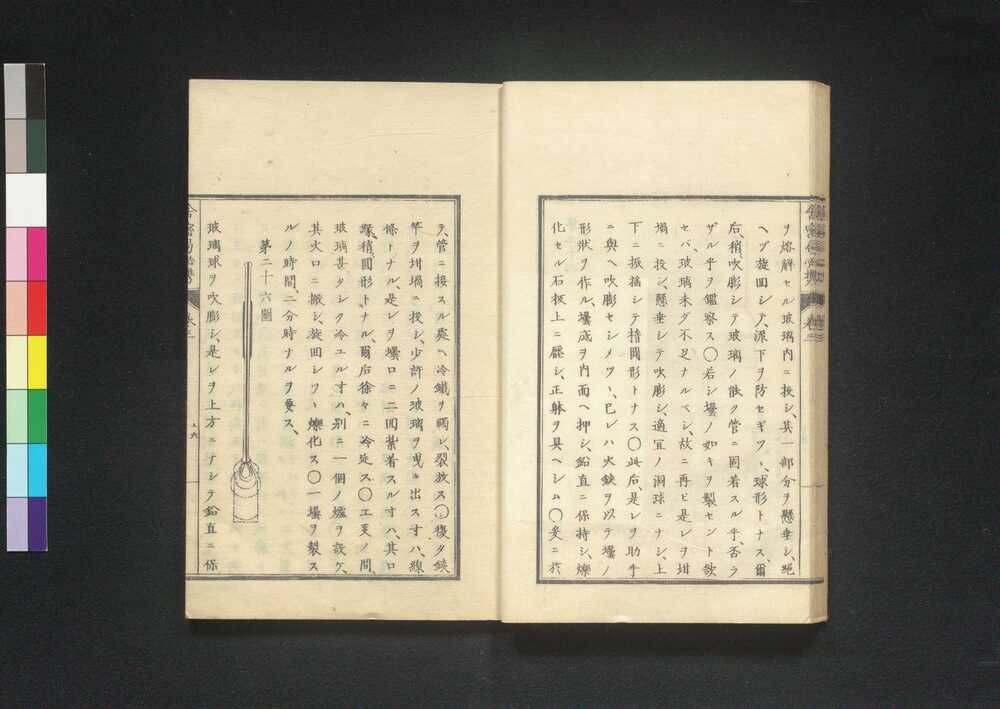 ヲ熔解セル玻璃内ニ投シ、其一部分ヲ懸垂シ、絶
ヘヅ旋回シテ、涿下ヲ防セギツヽ、球形トナス、爾
后、稍吹膨シテ玻璃ノ能ク管ニ固着スル乎、否ラ
ザル乎ヲ鑑察ス〇若シ壜ノ如キヲ製セント欲
セバ、玻璃未ダ不足ナルベシ、故ニ再ビ是レヲ坩
堝ニ投シ、懸垂シテ吹膨シ、適宜ノ洞球ニナシ、上
下ニ振揺シテ楕圓形トナス〇此后、是レヲ助手
ニ與ヘ吹膨セシメツヽ、已レハ火鋏ヲ以テ壜ノ
形狀ヲ作ル、壜底ヲ内面ヘ押シ、鉛直ニ保持シ、爍
化セル石板上ニ壓シ、正躰ヲ具ヘシム〇爰ニ於
テ、管ニ接スル處ヘ冷鐵ヲ觸レ、裂放ス〇復タ鋏
竿ヲ坩堝ニ投シ、少許ノ玻璃ヲ曳キ出スオハ、線
條トナル、是レヲ壜口ニ二回紮着スルオハ、其口
縁、稍圓形トナル、爾后徐々ニ冷定ス〇工業ノ間、
玻璃甚タシク冷ユルオハ、別ニ一個ノ爐ヲ設ケ、
其火口ニ搬シ、旋回シツヽ爍化ス〇一壜ヲ製ス
ルノ時間、二分時ナルヲ要ス、
第二十六圖
玻璃球ヲ吹膨シ、是レヲ上方ニナシテ鉛直ニ保